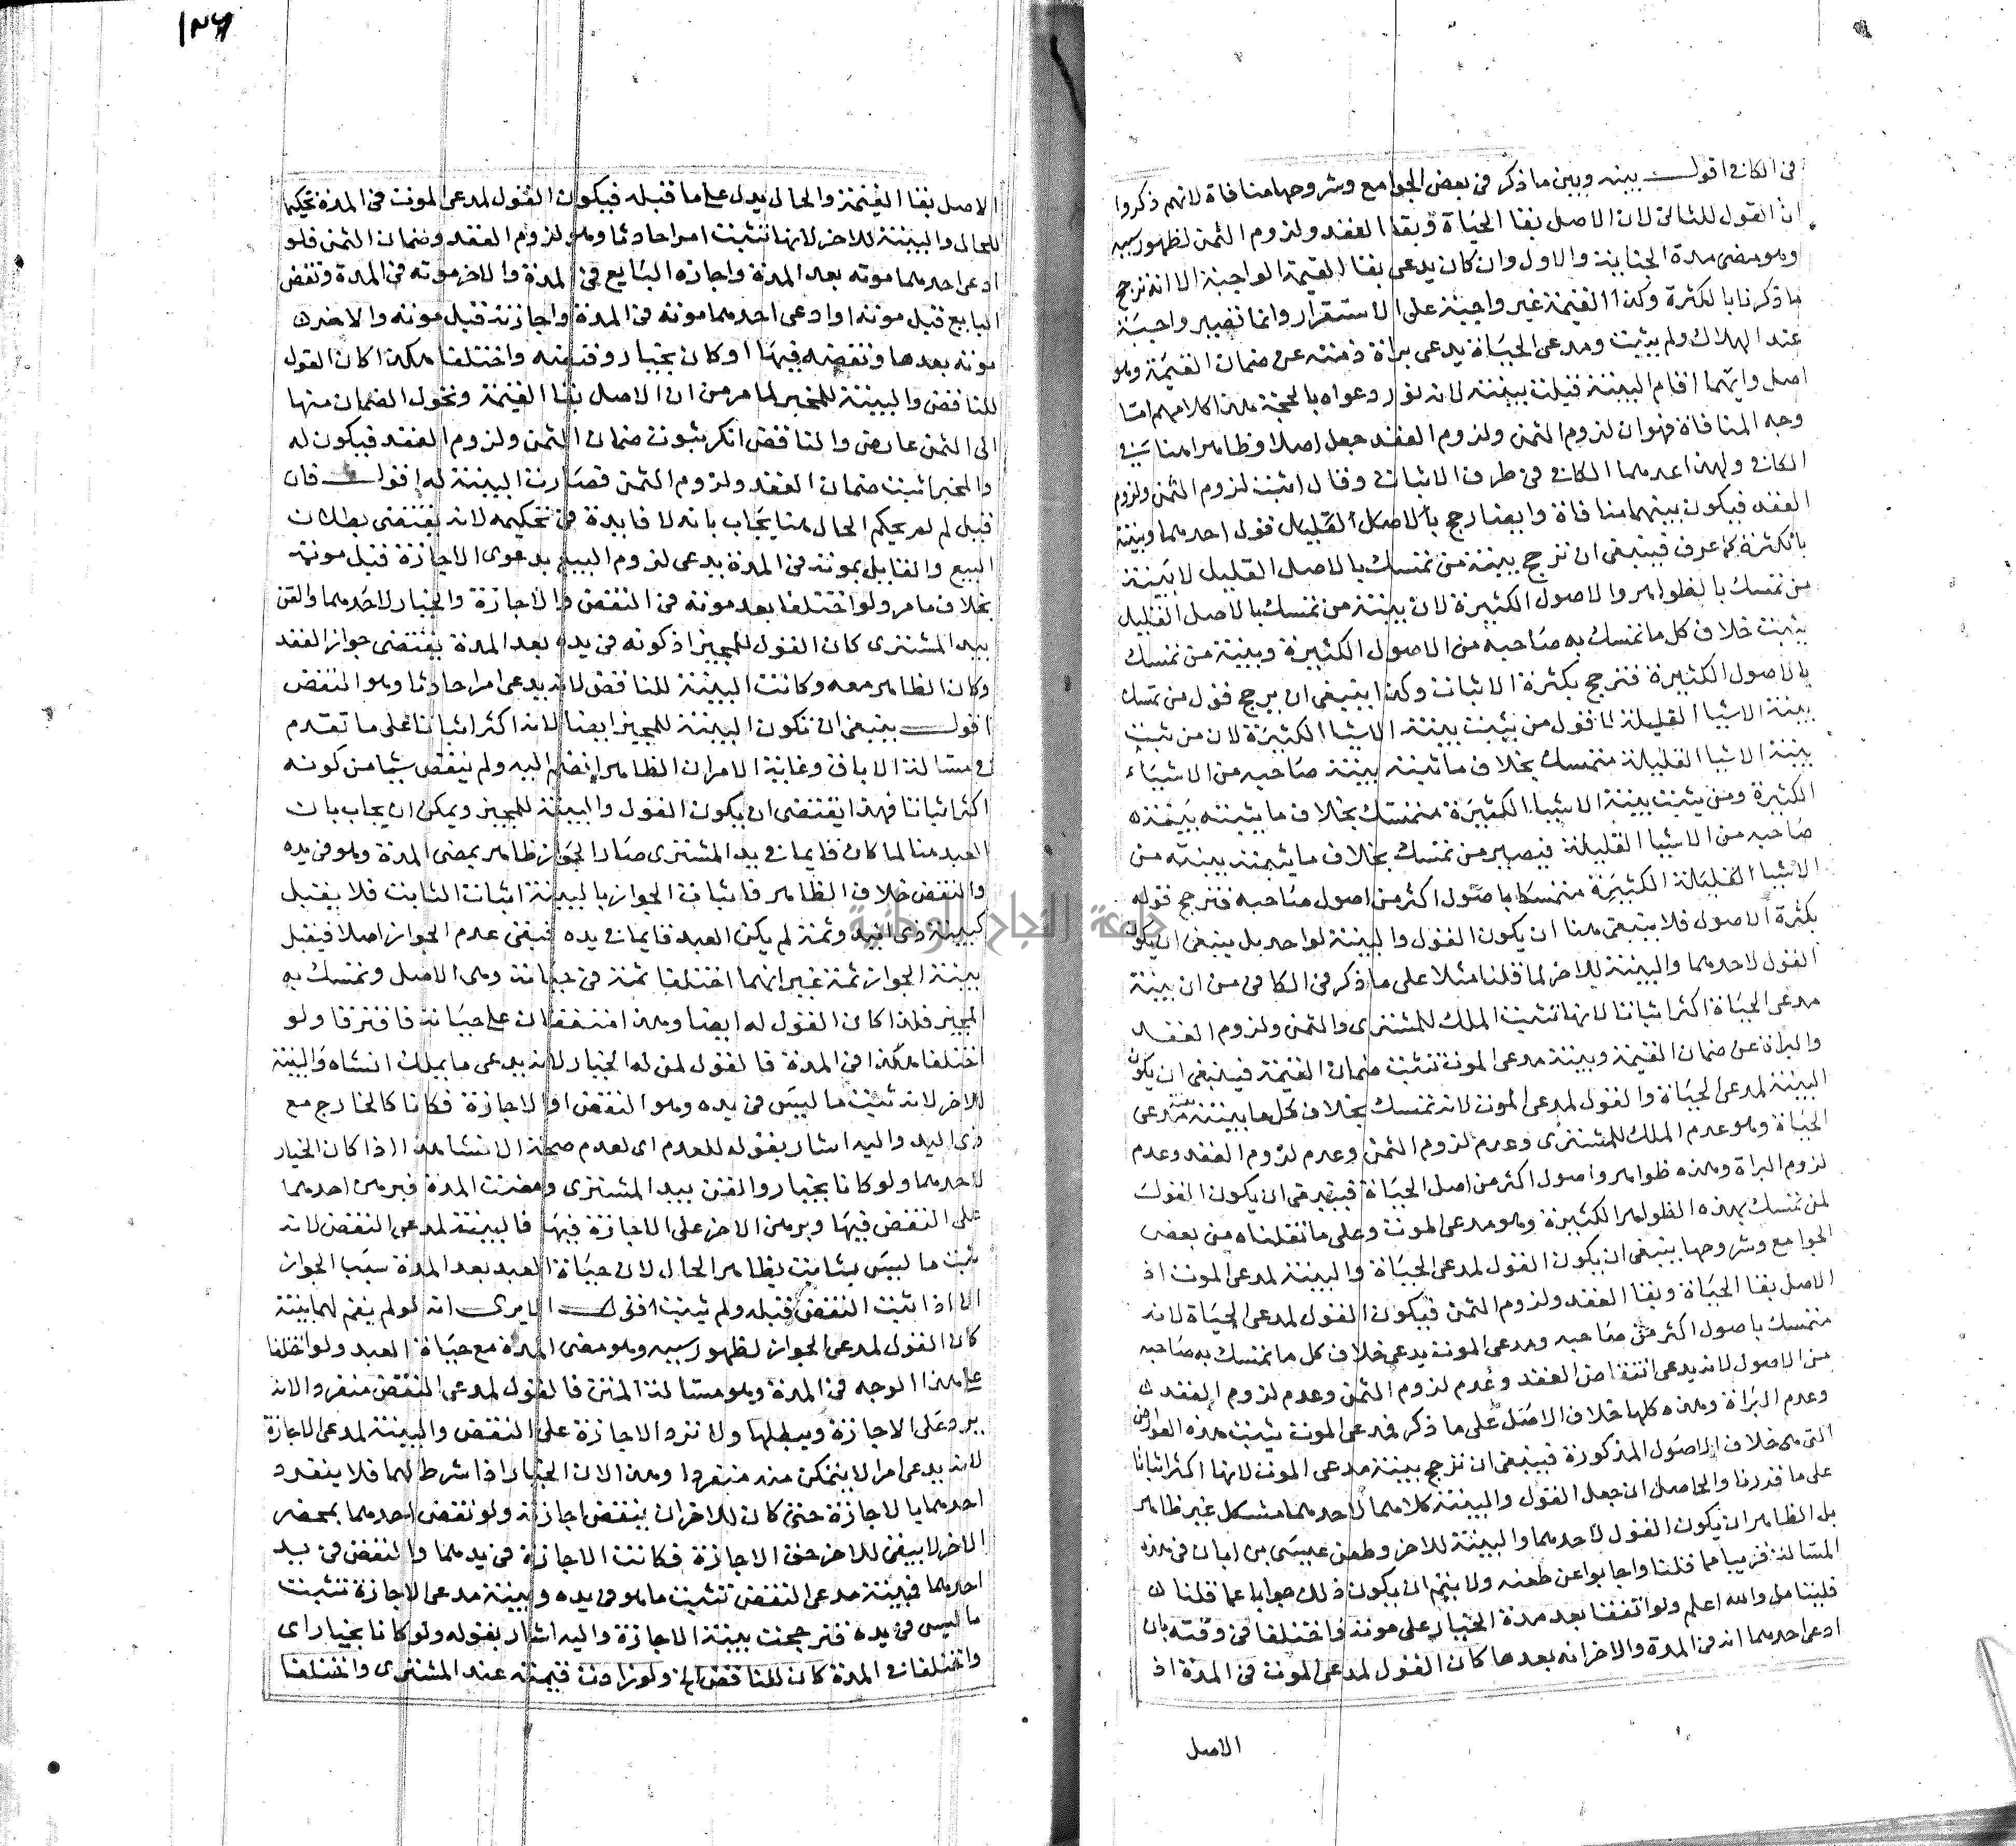 في الكافي اقول بينه وبين ما ذكر في بعض الجوامع وشروحها منافاة لانهم ذكروا
ان القول للثاني لان الاصل بقا الحياة وبقا العقد ولزوم الثمن لظهور سببه
وهو مضي مدة الخيار والاول وان كان يدعي بقا القيمة الواجبة الا انه ترجح
ما ذكرنا بالكثرة وكذا القيمة غير واجبة على الاستقرار وانما تصير واجبة
عند الهلاك ولم يثبت ومدعي الحياة يدعي براة ذمته عن ضمان القيمة وهو
اصل وايهما اقام البينة قبلت بينته لانه نور دعواه بالحجة هذا كلامهم اما
وجه المنافاة فهو ان لزوم الثمن ولزوم العقد جعل اصلا وظاهرا منا في
الكافي ولهذا عدهما الكافي في طرف الاثبات وقال اثبت لزوم الثمن ولزوم
العقد فيكون بينهما منافاة وايضا رجح بالاصل القليل قول احدهما وبينته
بالكثرة كما عرف فينبغي ان ترجح بينة من تمسك بالاصل القليل لا بينة
من تمسك بالظواهر والاصول الكثيرة لان بينة من تمسك بالاصل القليل
يثبت خلاف كل ما تمسك به صاحبه من الاصول الكثيرة وبينة من تمسك
بالاصول الكثيرة فترجح بكثرة الاثبات وكذا ينبغي ان يرجح قول من تمسك
بينة الاشيا القليلة لا قول من يثبت بينة الاشيا الكثيرة لان من يثبت
بينة الاشيا القليلة متمسك بخلاف ما تثبته بينة صاحبه من الاشياء
الكثيرة ومن يثبت بينة الاشيا الكثيرة متمسك بخلاف ما يثبته بينة
صاحبه من الاشيا القليلة فيصير من تمسك بخلاف ما يثبته بينته من
الاشيا القليلة الكثيرة متمسكا باصول اكثر من اصول صاحبه فترجح قوله
بكثرة الاصول فلا ينبغي هنا ان يكون القول والبينة لواحد بل ينبغي ان يكون
القول لاحدهما والبينة للاخر لما قلنا مثلا على ما ذكر في الكافي من ان بينة
مدعي الحياة اكثر اثباتا لانها تثبت الملك للمشتري والثمن ولزوم العقد
والبراة عن ضمان القيمة وبينة مدعي الموت تثبت ضمان القيمة فينبغي ان يكون
البينة لمدعي الحياة والقول لمدعي الموت لانه تمسك بخلاف كل ما بينته مدعي
الحياة وهو عدم الملك للمشتري وعدم لزوم الثمن وعدم لزوم العقد وعدم
لزوم البراة وهذه ظواهر واصول اكثر من اصل الحياة فينبغي ان يكون القول
لمن تمسك بهذه الظواهر الكثيرة وهو مدعي الموت وعلى ما نقلناه من بعض
الجوامع وشروحها ينبغي ان يكون القول لمدعي الحياة والبينة لمدعي الموت اذ
الاصل بقا الحياة وبقا العقد ولزوم الثمن فيكون القول لمدعي الحياة لانه
متمسك باصول اكثر من صاحبه ومدعي الموت يدعي خلاف كل ما تمسك به صاحبه
من الاصول لانه يدعي انتقاض العقد وعدم لزوم الثمن وعدم لزوم العقد
وعدم البراة وهذه كلها خلاف الاصل على ما ذكر فمدعي الموت يثبت هذه العوارض
التي هي خلاف الاصول المذكورة فينبغي ان ترجح بينة مدعي الموت لانها اكثر اثباتا
على ما قررنا والحاصل ان جعل القول والبينة كلاهما لاحدهما مشكل غير ظاهر
بل الظاهر ان يكون القول لاحدهما والبينة للاخر وطعن عيسى بن ابان في هذه
المسالة قريبا مما قلنا واجابوا عن طعنه ولا ينتم ان يكون ذلك جوابا عما قلنا
فليتامل والله اعلم ولو اتفقا بعد مدة الخيار على موته واختلفا في وقته بان
ادعى احدهما انه في المدة والاخر انه بعدها كان القول لمدعي الموت في المدة اذ
الاصل
١٣٦
الاصل بقا القيمة والحال يدل على ما قبله فيكون القول لمدعي الموت في المدة تحكيما
للحال والبينة للاخر لانها تثبت امرا حادثا وهو لزوم العقد وضمان الثمن فلو
ادعى احدهما موته بعد المدة واجازة البايع في المدة والاخر موته في المدة ونقض
البايع قبل موته او ادعى احدهما موته في المدة واجازته قبل موته والاخر
موته بعدها ونقضه فيها او كان بخيار وقبضه واختلفا هكذا كان القول
للناقض والبينة للمجيز لما مر من ان الاصل بقا القيمة وتحول الضمان منها
الى الثمن عارض والناقض انكر ثبوت ضمان الثمن ولزوم العقد فيكون له
والمجيز اثبت ضمان العقد ولزوم الثمن فصارت البينة له اقول فان
قيل لم لم يحكم الحال هنا يجاب بانه لا فايدة في تحكيمه لانه يقتضي بطلان
البيع والقايل بموته في المدة يدعي لزوم البيع بدعوى الاجازة قبل موته
بخلاف ما مر ولو اختلفا بعد موته في النقض والاجازة والخيار لاحدهما والقن
بيد المشتري كان القول للمجيز اذ كونه في يده بعد المدة يقتضي جواز العقد
وكان الظاهر معه وكانت البينة للناقض لانه يدعي امرا حادثا وهو النقض
اقول ينبغي ان تكون البينة للمجيز ايضا لانه اكثر اثباتا على ما تقدم
في مسالة الاباق وغاية الامر ان الظاهر انضم اليه ولم ينقص شيا من كونه
اكثر اثباتا فهذا يقتضي ان يكون القول والبينة للمجيز ويمكن ان يجاب بان
العبد هنا لما كان قايما في يد المشتري صار الجواز ظاهر بمضي المدة وهو في يده
والنقض خلاف الظاهر فاثبات الجواز بالبينة اثبات الثابت فلا يقبل
كبينة ذي اليد وثمة لم يكن العبد قايما في يده فبقي عدم الجواز اصلا فيقبل
بينة الجواز ثمة غير انهما اختلفا ثمة في حياته وهي الاصل وتمسك به
المجيز فلذا كان القول له ايضا وهنا متفقان على حياته فافترقا ولو
اختلفا هكذا في المدة فالقول لمن له الخيار لانه يدعي ما يملك انشاه والبينة
للاخر لانه تثبت ما ليس في يده وهو النقض او الاجازة فكانا كالخارج مع
ذي اليد واليه اشار بقوله للعدم اي لعدم صحة الانشا هذا اذا كان الخيار
لاحدهما ولو كانا بخيار والقن بيد المشتري ومضت المدة فبرهن احدهما
على النقض فيها وبرهن الاخر على الاجازة فيها فالبينة لمدعي النقض لانه
يثبت ما ليس بثابت بظاهر الحال لان حياة العبد بعد المدة سبب الجواز
الا اذا ثبت النقض قبله ولم يثبت اقول الا يرى انه لو لم يقم لهما بينة
كان القول لمدعي الجواز لظهور سببه وهو مضي المدة مع حياة العبد ولو اختلفا
على هذا الوجه في المدة وهو مسالة المتن فالقول لمدعي النقض منفرد الانه
يرد على الاجازة ويبطلها ولا ترد الاجازة على النقض والبينة لمدعي الاجازة
لانه يدعي امرا لا يتمكن منه منفردا وهذا لان الخيار اذا شرط لهما فلا ينفرد
احدهما بالاجازة حتى كان للاخر ان ينقض اجازته ولو نقض احدهما بمحضر
الاخر لا يبقى للاخر حق الاجازة فكانت الاجازة في يدهما والنقض في يد
احدهما فبينة مدعي النقض تثبت ما هو في يده وبينة مدعي الاجازة تثبت
ما ليس في يده فترجحت بينة الاجازة واليه اشار بقوله ولو كانا بخيار اي
واختلفا في المدة كان للناقض الخ ولو زادت قيمته عند المشتري واختلفا